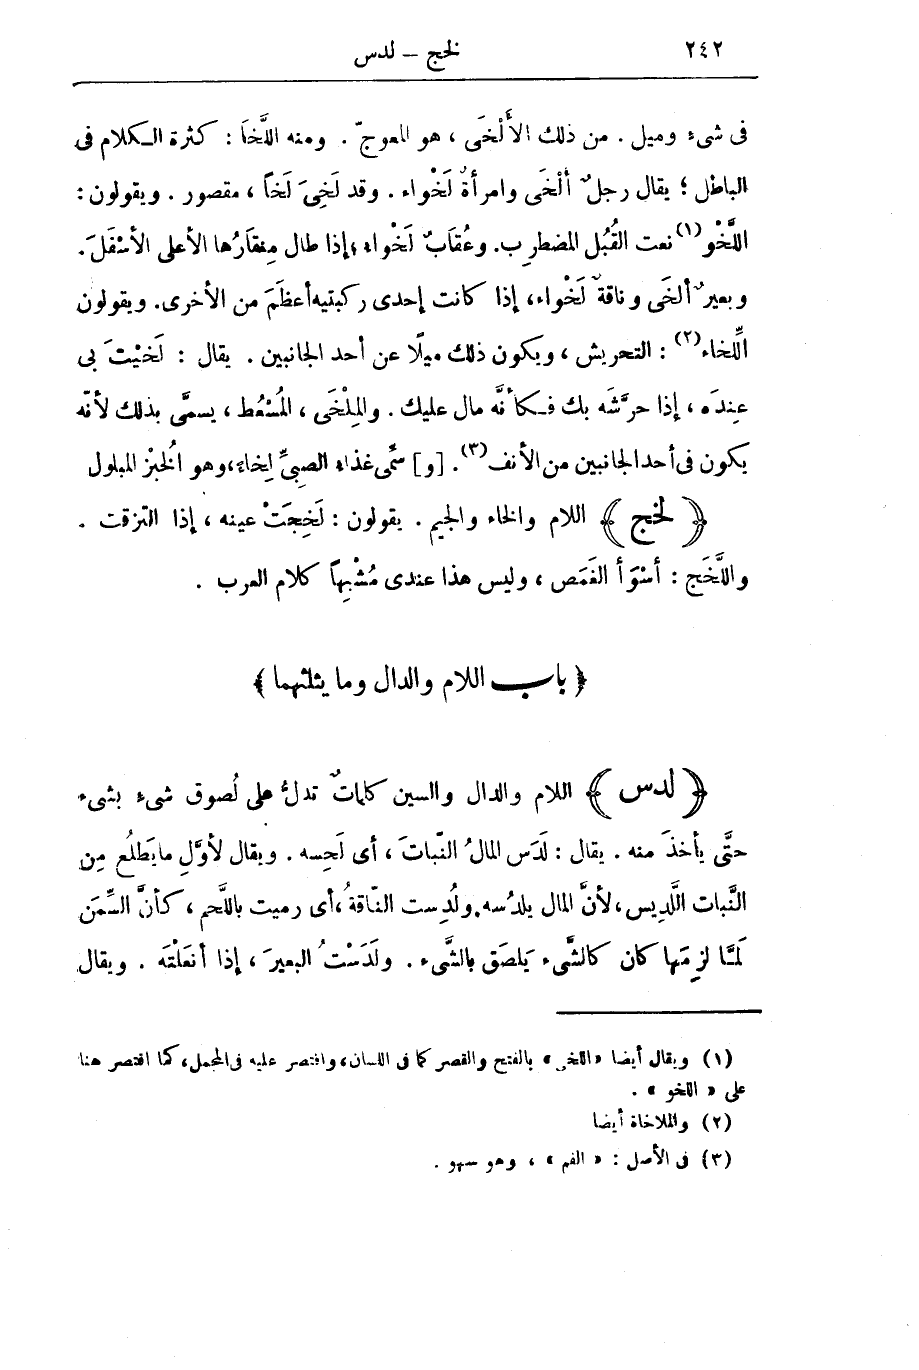 ٢٤٢
لخج – لدس
فى شىء وميل . من ذلك الأَلْخَى ، هو المعوجّ . ومنه اللَّخَا : كثرة الكلام فى
الباطل ؛ يقال رجلٌ ألْخَى وامرأةٌ لَخْواء . وقد لَخِىَ لَخاً ، مقصور . ويقولون :
اللَّخْو(١) نعت القُبُل المضطرِب . وعُقابٌ لَخْواء ، إذا طال مِنقارُها الأعلى الأسْفَلَ .
وبعيرٌ ألخَى وناقةٌ لَخْواء ، إذا كانت إحدى ركبتيه أعظَمَ من الأخرى . ويقولون
اللِّخاء(٢) : التحريش ، ويكون ذلك ميلًا عن أحد الجانبين . يقال : لَخيْتَ بى
عِندَه ، إذا حرَّشَه بك فكأنَّه مال عليك . والمِلْخَى ، المُسْعُط ، يسمَّى بذلك لأنّه
يكون فى أحد الجانبين من الأنف(٣) . [و] سمِّى غذاء الصبىِّ لِخاءَ ، وهو الخُبْز المبلول
﴿ لخج ﴾ اللام والخاء والجيم . يقولون : لَخِجَتْ عينه ، إذا التزقت .
واللَّخَج : أسْوَأ الغَمَص ، وليس هذا عندى مُشْبِهاً كلام العرب .
﴿ باب اللام والدال وما يثلثهما ﴾
﴿ لدس ﴾ اللام والدال والسين كلماتٌ تدلُّ على لُصوق شىءٍ بشىء
حتَّى يأخذَ منه . يقال : لَدَس المالُ النّباتَ ، أى لَحِسه . ويقال لأوَّلِ ما يَطلُع مِن
النَّبات اللَّدِيس ، لأنَّ المال يلدُسه . ولُدِست النّاقةُ ، أى رميت باللَّحم ، كأنَّ السِّمَن
لمَّا لزِمَها كان كالشَّىء يَلصَق بالشَّىء . ولَدَسْتُ البعيرَ ، إذا أنعَلْتَه . ويقال
(١) ويقال أيضا «اللخى» بالفتح والقصر كما فى اللسان ، واقتصر عليه فى المجمل ، كما اقتصر هنا
على « اللخو » .
(٢) والملاخاة أيضا
(٣) فى الأصل : « الفم » ، وهو سهو .